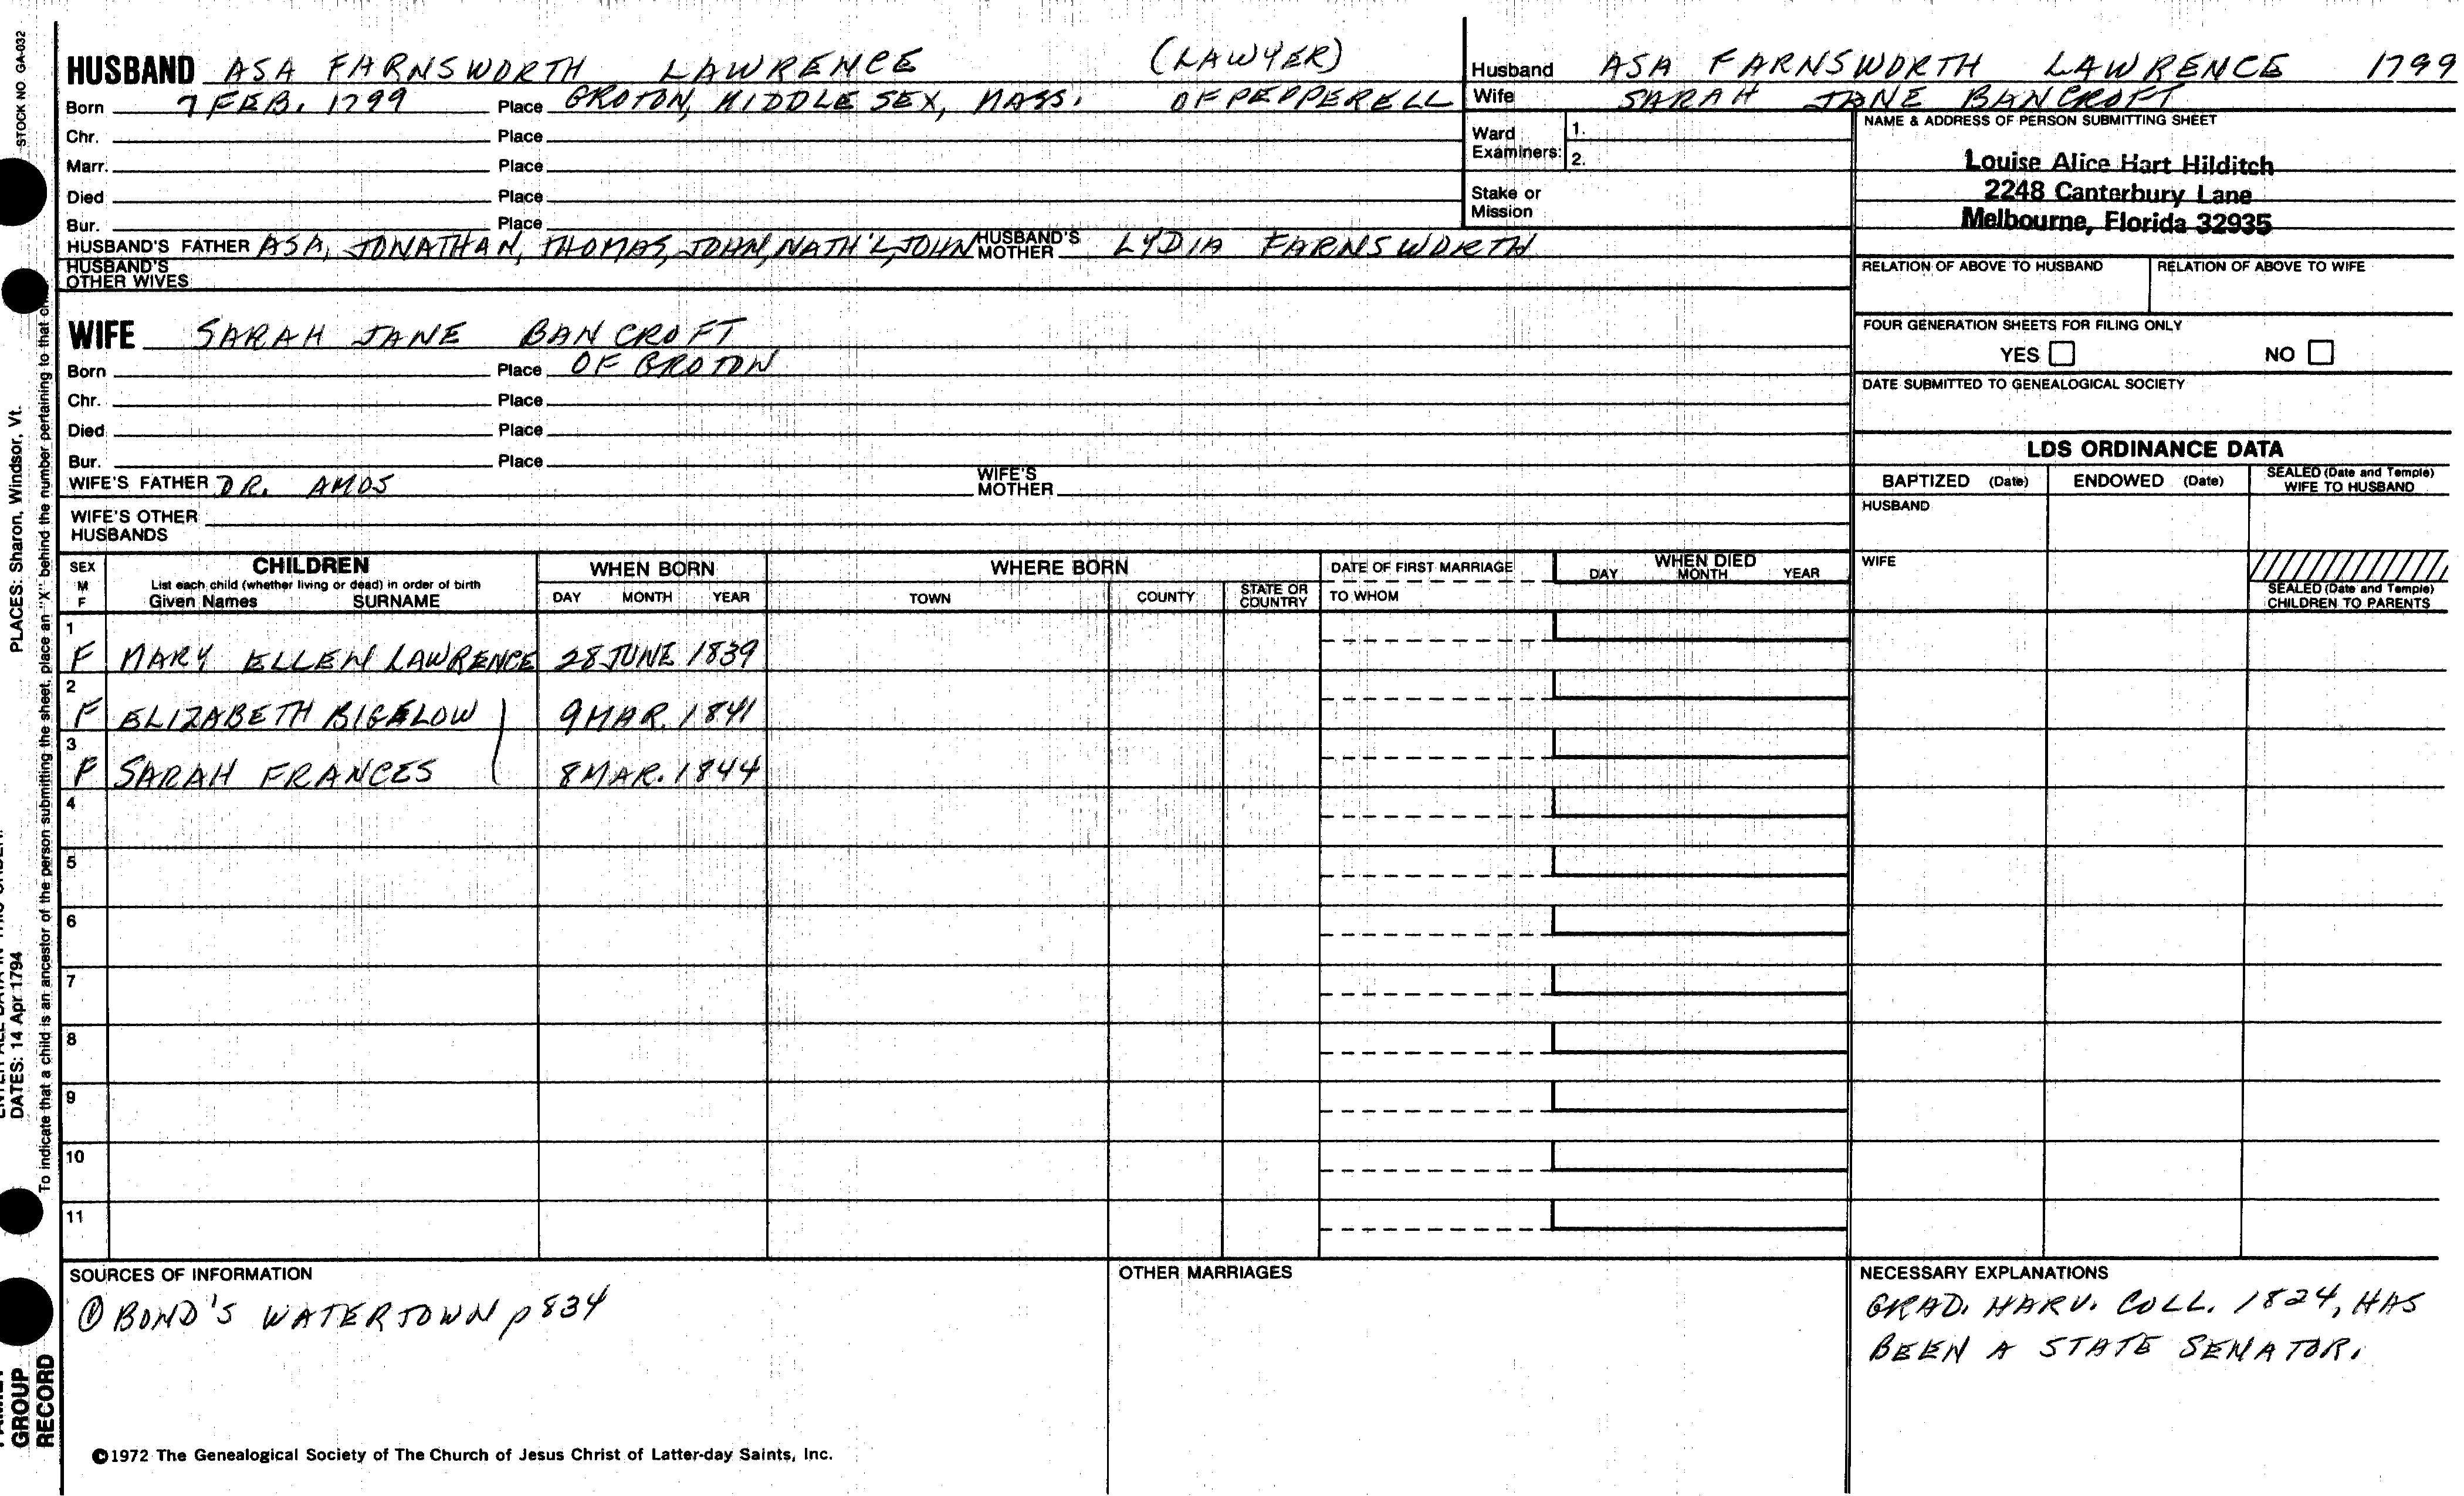 STOCK NO. GA-032
HUSBAND ASA FARNSWORTH LAWRENCE (LAWYER)
Born 7 FEB. 1799 Place GROTON, MIDDLESEX, MASS. OF PEPPERELL
Chr. Place
Marr. Place
Died Place
Bur. Place
HUSBAND'S FATHER ASA, JONATHAN, THOMAS, JOHN, NATH'L, JOHN HUSBAND'S MOTHER LYDIA FARNSWORTH
HUSBAND'S OTHER WIVES
Husband ASA FARNSWORTH LAWRENCE 1799
Wife SARAH JANE BANCROFT
Ward Examiners: 1.
2.
Stake or Mission
NAME & ADDRESS OF PERSON SUBMITTING SHEET
Louise Alice Hart Hilditch
2248 Canterbury Lane
Melbourne, Florida 32935
RELATION OF ABOVE TO HUSBAND RELATION OF ABOVE TO WIFE
FOUR GENERATION SHEETS FOR FILING ONLY
YES NO
DATE SUBMITTED TO GENEALOGICAL SOCIETY
WIFE SARAH JANE BANCROFT
Born Place OF GROTON
Chr. Place
Died Place
Bur. Place
WIFE'S FATHER DR. AMOS WIFE'S MOTHER
WIFE'S OTHER HUSBANDS
LDS ORDINANCE DATA
BAPTIZED (Date) ENDOWED (Date) SEALED (Date and Temple) WIFE TO HUSBAND
HUSBAND
WIFE
SEALED (Date and Temple) CHILDREN TO PARENTS
SEX M F
CHILDREN
List each child (whether living or dead) in order of birth
Given Names SURNAME
WHEN BORN
DAY MONTH YEAR
WHERE BORN
TOWN COUNTY STATE OR COUNTRY
DATE OF FIRST MARRIAGE
TO WHOM
WHEN DIED
DAY MONTH YEAR
1
F MARY ELLEN LAWRENCE 28 JUNE 1839
2
F ELIZABETH BIGELOW 9 MAR. 1841
3
F SARAH FRANCES 8 MAR. 1844
4
5
6
7
8
9
10
11
SOURCES OF INFORMATION
① BOND'S WATERTOWN p 834
OTHER MARRIAGES
NECESSARY EXPLANATIONS
GRAD. HARV. COLL. 1824, HAS
BEEN A STATE SENATOR.
©1972 The Genealogical Society of The Church of Jesus Christ of Latter-day Saints, Inc.
PLACES: Sharon, Windsor, Vt.
DATES: 14 Apr 1794
To indicate that a child is an ancestor of the person submitting the sheet, place an "X" behind the number pertaining to that
GROUP
RECORD